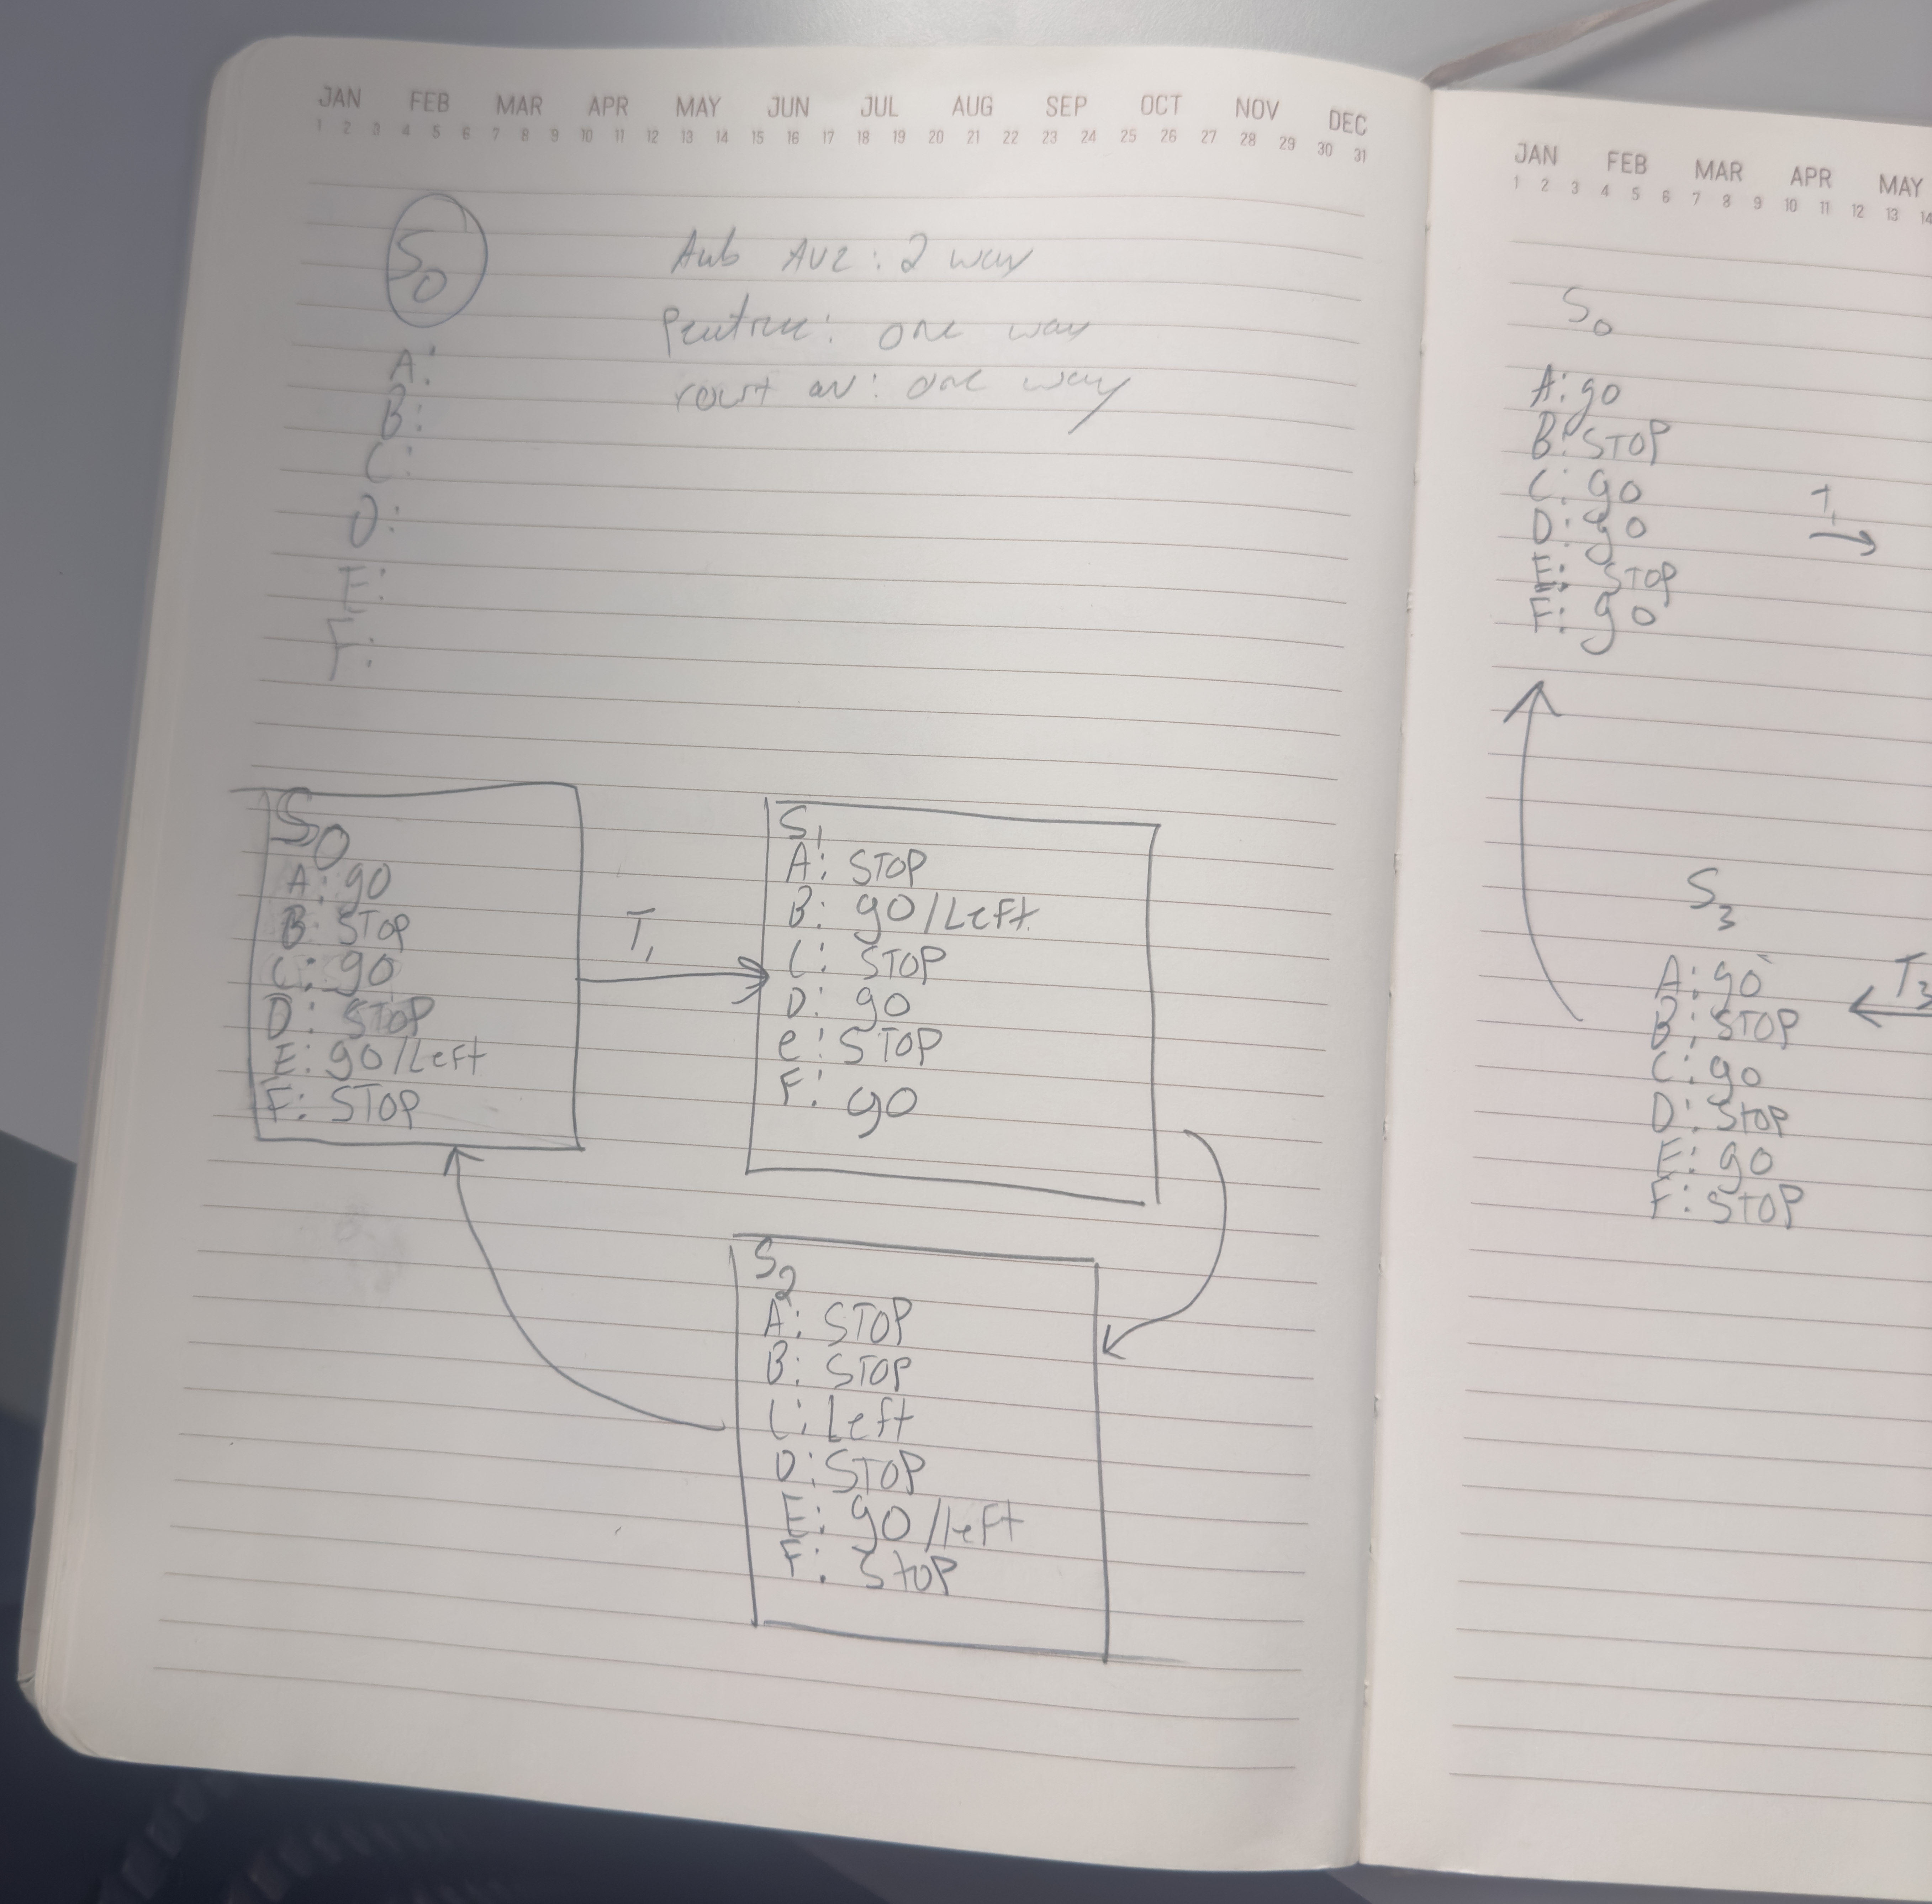 JAN FEB MAR APR MAY JUN JUL AUG SEP OCT NOV DEC
1 2 3 4 5 6 7 8 9 10 11 12 13 14 15 16 17 18 19 20 21 22 23 24 25 26 27 28 29 30 31
S0
Aub AVE: 2 way
one way
av: one way
A:
B:
C:
D:
E:
F:
S0
A: go
B: STOP
C: go
D: STOP
E: go/Left
F: STOP
T1
S1
A: STOP
B: go/Left
C: STOP
D: go
e: STOP
F: go
S2
A: STOP
B: STOP
C: Left
D: STOP
E: go/left
F: Stop
JAN FEB MAR APR MAY
1 2 3 4 5 6 7 8 9 10 11 12 13 14
S0
A: go
B: STOP
C: go
D: go
E: STOP
F: go
T1
S3
A: go
B: STOP
C: go
D: Stop
E: go
F: STOP
T3